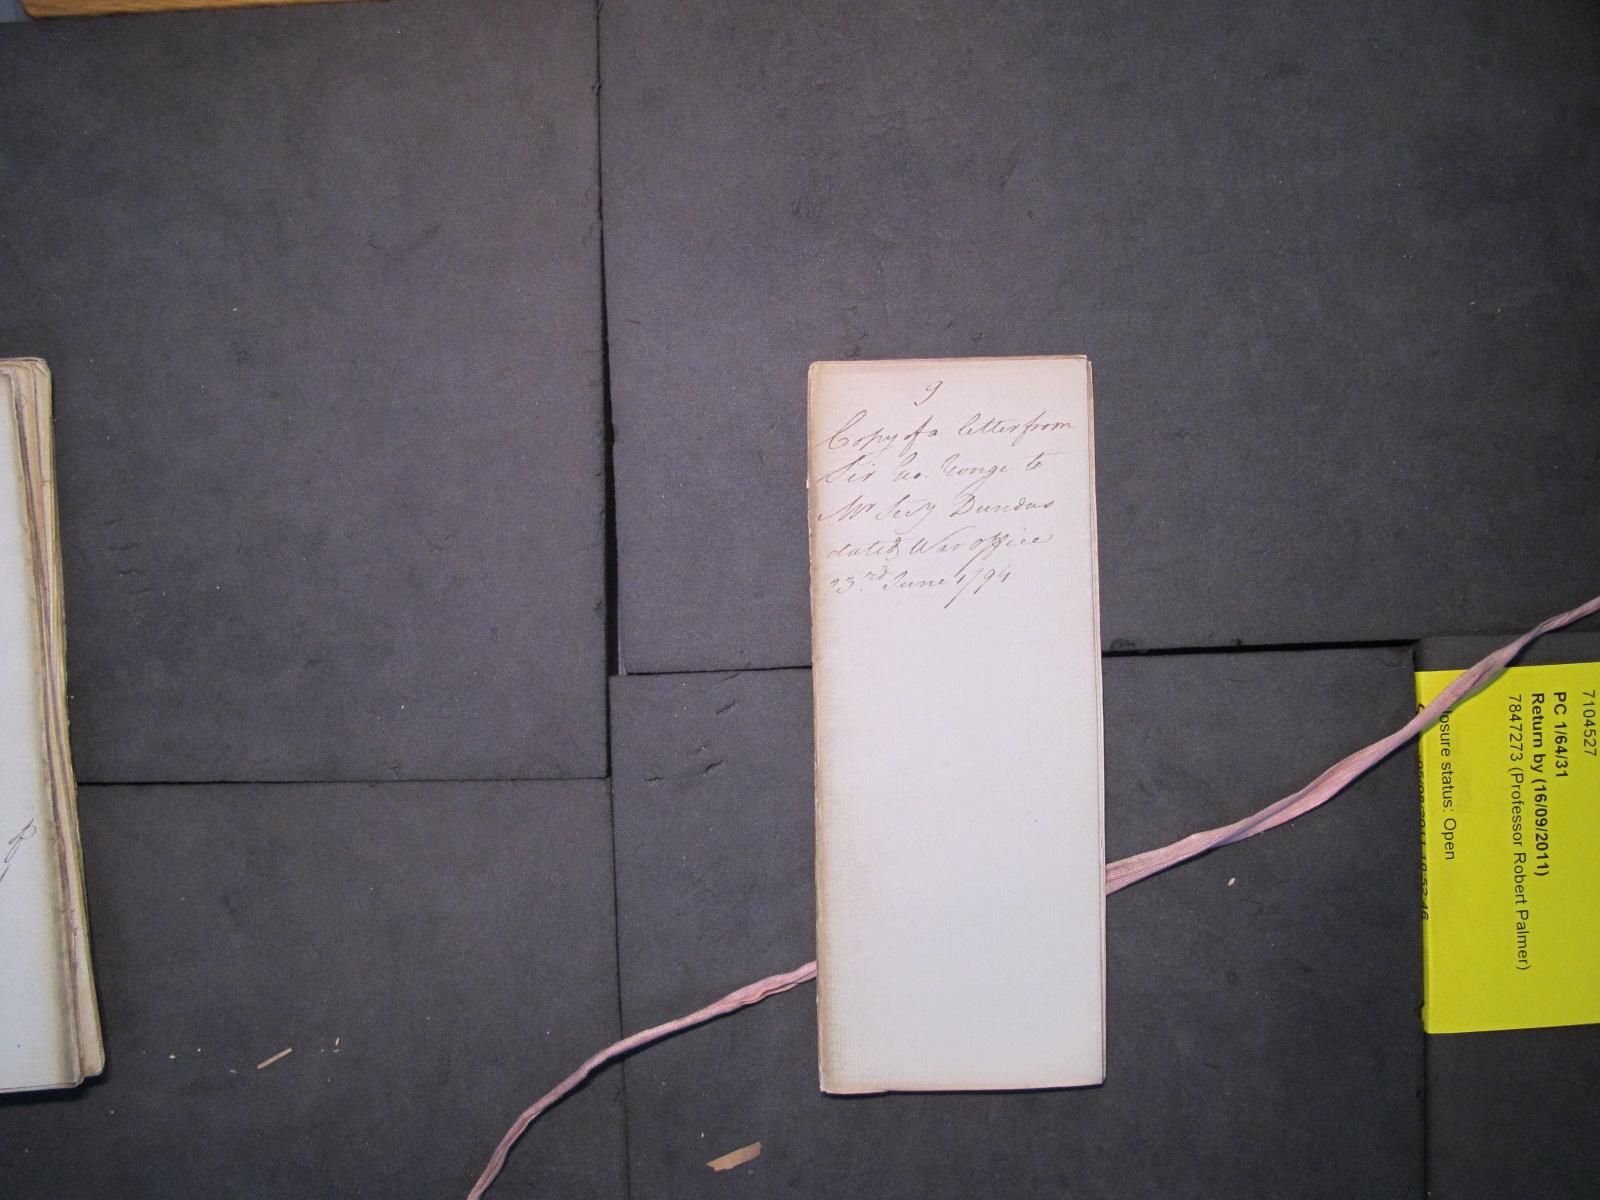 9
Copy of a letter from
Sir Geo. Yonge to
Mr Secy Dundas
dated War office
23.rd June 1794
7104527
PC 1/64/31
Return by (16/09/2011)
7847273 (Professor Robert Palmer)
losure status: Open